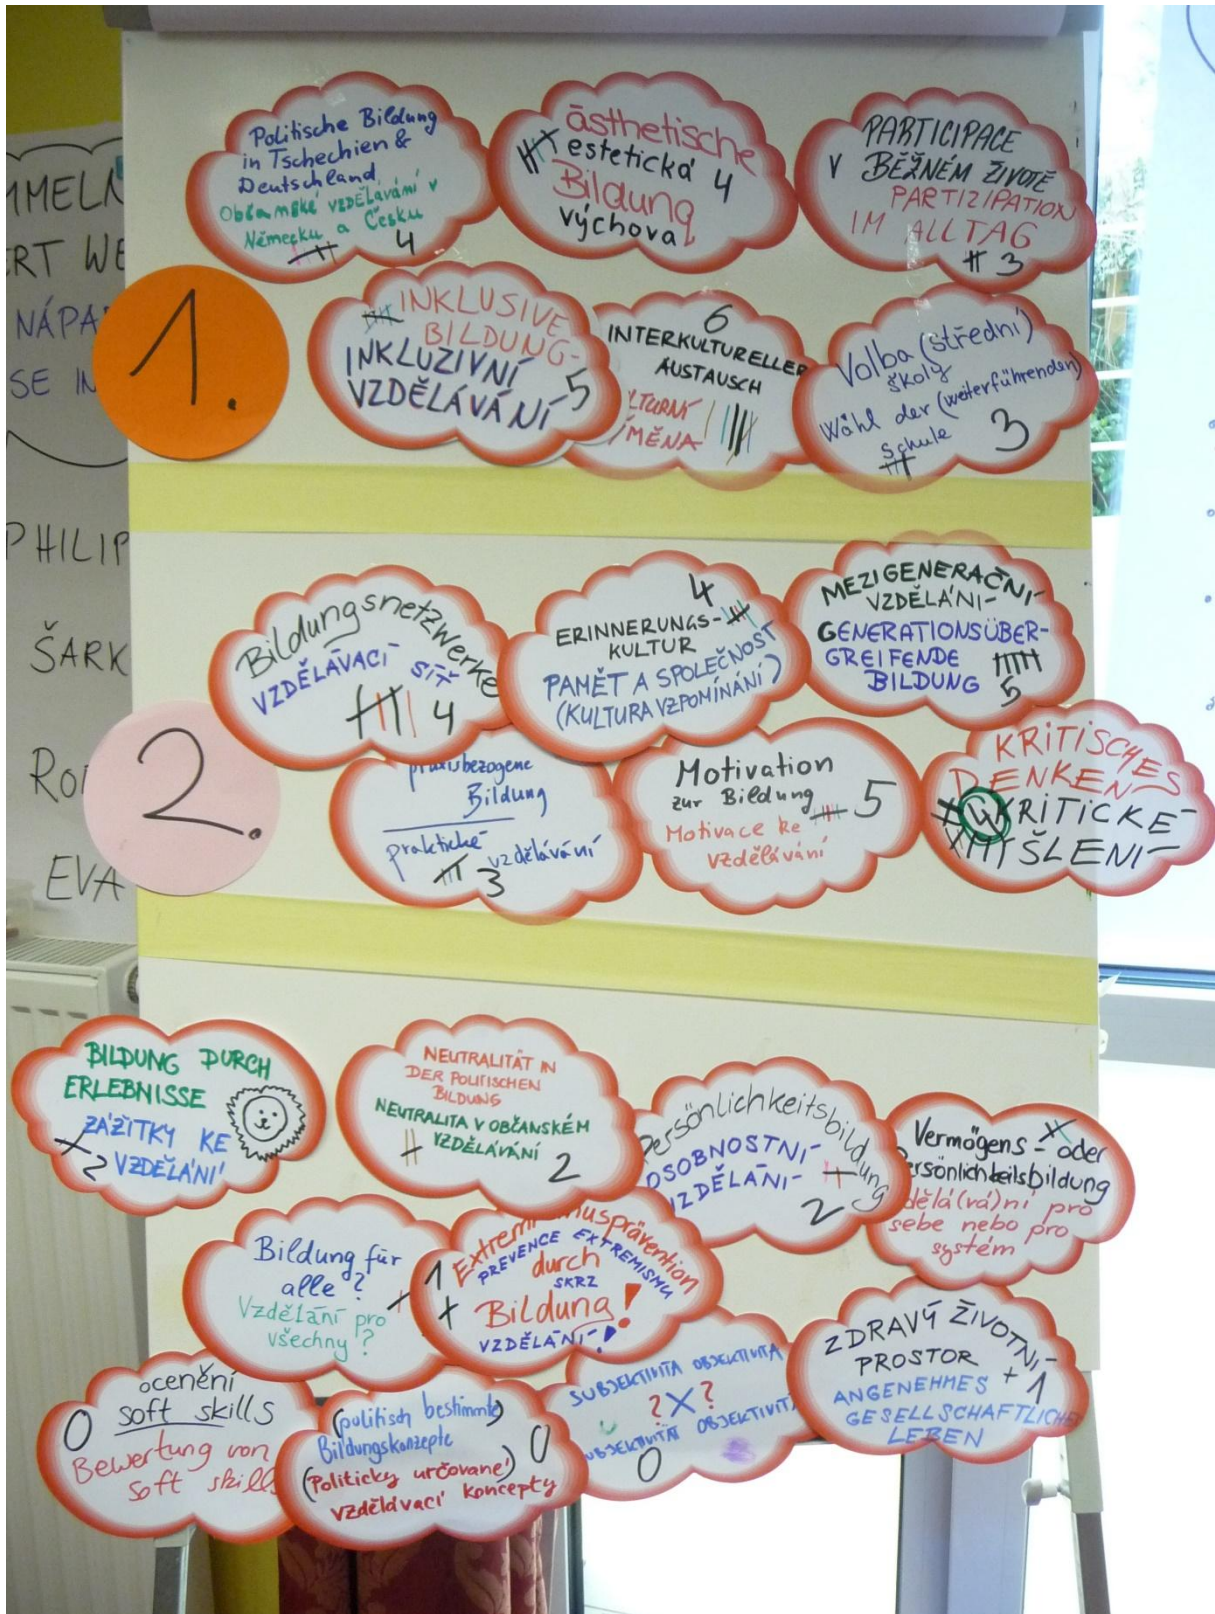 Politische Bildung
in Tschechien &
Deutschland
Občanské vzdělávání v
Německu a Česku
4
ästhetische
estetická 4
Bildung
výchova
PARTICIPACE
V BĚŽNÉM ŽIVOTĚ
PARTIZIPATION
IM ALLTAG
3
1.
INKLUSIVE
BILDUNG-
INKLUZIVNÍ
VZDĚLÁVÁNÍ 5
6
INTERKULTURELLER
AUSTAUSCH
LTURNÍ
MĚNA
Volba (střední)
školy
Wahl der (weiterführenden)
schule 3
PHILIP
ŠARK
EVA
Bildungsnetzwerke
VZDĚLÁVACÍ SÍŤ
4
4
ERINNERUNGS-
KULTUR
PAMĚT A SPOLEČNOST
(KULTURA VZPOMÍNÁNÍ)
MEZIGENERAČNÍ
VZDĚLÁNÍ
GENERATIONSÜBER-
GREIFENDE
BILDUNG
5
2.
praxisbezogene
Bildung
praktické
vzdělávání
3
Motivation
zur Bildung 5
Motivace ke
vzdělávání
KRITISCHES
DENKEN
4 KRITICKÉ
MYŠLENÍ
BILDUNG DURCH
ERLEBNISSE
ZÁŽITKY KE
2 VZDĚLÁNÍ
NEUTRALITÄT IN
DER POLITISCHEN
BILDUNG
NEUTRALITA V OBČANSKÉM
VZDĚLÁVÁNÍ
2
Persönlichkeitsbildung
OSOBNOSTNÍ
VZDĚLÁNÍ
2
Vermögens- oder
Persönlichkeitsbildung
dělá(vá)ní pro
sebe nebo pro
systém
Bildung für
alle?
Vzdělání pro
všechny?
1
Extremismusprävention
PREVENCE EXTREMISMU
durch
SKRZ
Bildung!
VZDĚLÁNÍ!
ZDRAVÝ ŽIVOTNÍ
PROSTOR 1
ANGENEHMES
GESELLSCHAFTLICHES
LEBEN
ocenění
0 soft skills
Bewertung von
soft skills
(politisch bestimmte)
Bildungskonzepte 0
(Politicky určované)
vzdělávací koncepty
SUBJEKTIVITA OBJEKTIVITA
? X ?
SUBJEKTIVITÄT OBJEKTIVITÄ
0